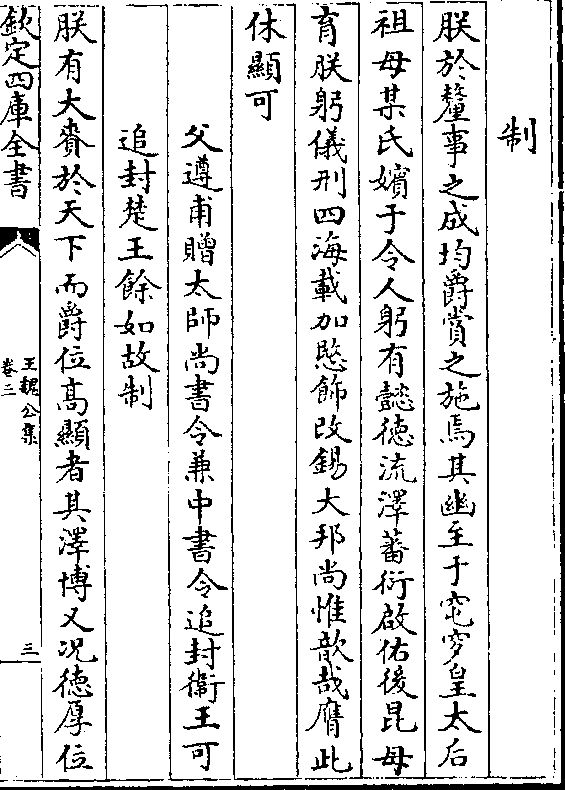 制
朕於釐事之成均爵賞之施焉其幽至于窀穸皇太后
祖母某氏嬪于令人躬有懿德流澤蕃衍啟佑後昆母
育朕躬儀刑四海載加愍飾改錫大邦尚惟歆哉膺此
休顯可
父遵甫贈太師尚書令兼中書令追封衛王可
追封楚王餘如故制
朕有大賚於天下而爵位髙顯者其澤博又况德厚位
欽定四庫全書
王魏公集
卷二
三